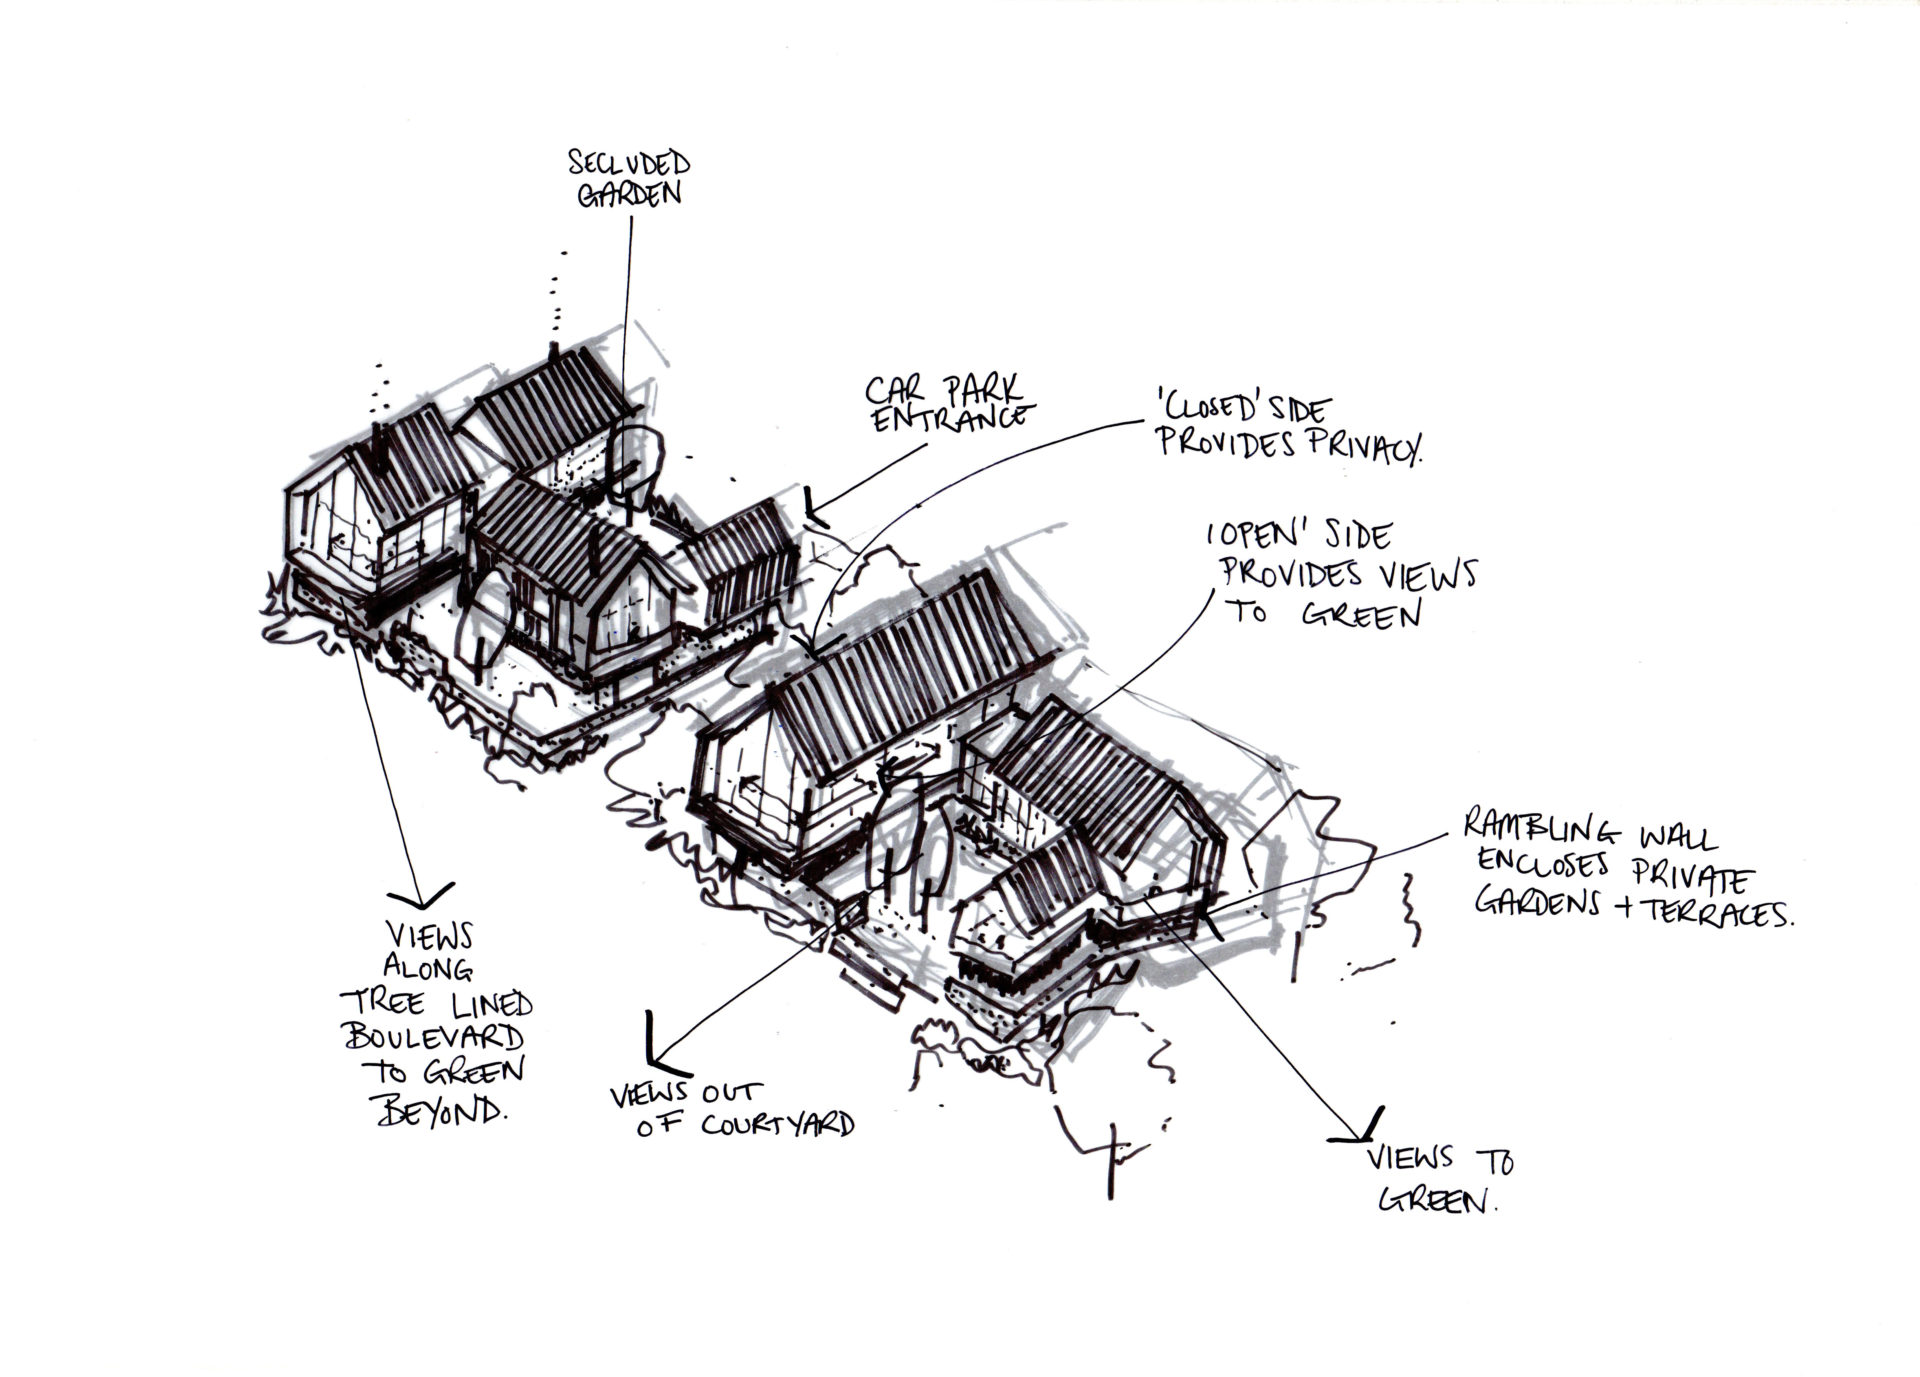 SECLUDED
GARDEN
CAR PARK
ENTRANCE
'CLOSED' SIDE
PROVIDES PRIVACY.
'OPEN' SIDE
PROVIDES VIEWS
TO GREEN
RAMBLING WALL
ENCLOSES PRIVATE
GARDENS + TERRACES.
VIEWS
ALONG
TREE LINED
BOULEVARD
TO GREEN
BEYOND.
VIEWS OUT
OF COURTYARD
VIEWS TO
GREEN.